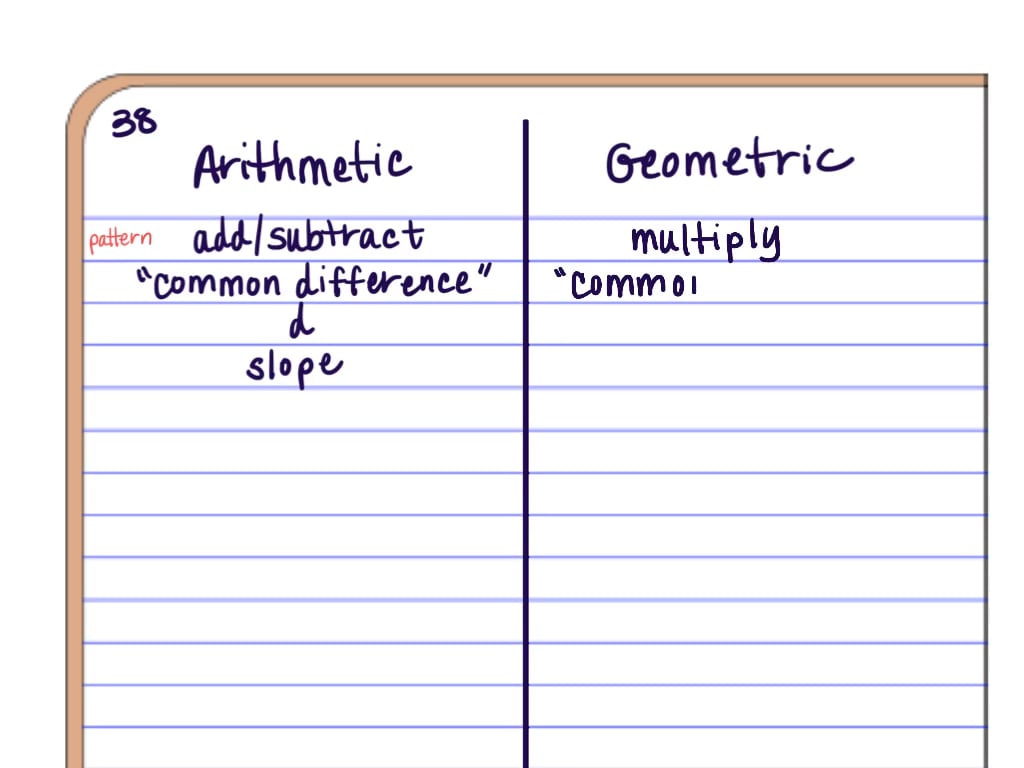 38
Arithmetic Geometric
pattern add/subtract multiply
"common difference" "commo
d
slope